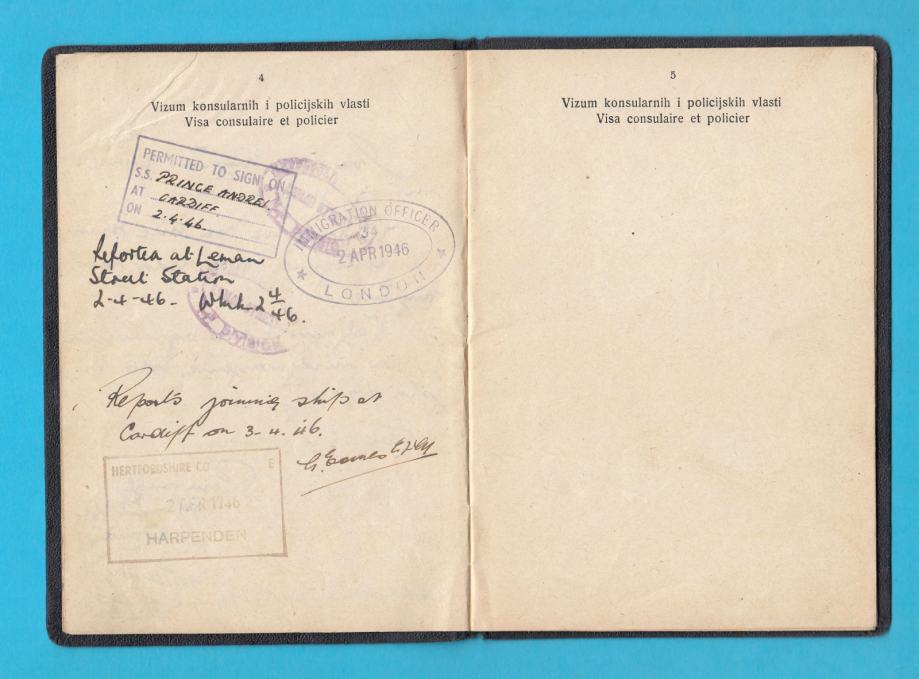 4
Vizum konsularnih i policijskih vlasti
Visa consulaire et policier
PERMITTED TO SIGN ON
S.S. PRINCE ANDREJ
AT CARDIFF
ON 2.4.46.
IMMIGRATION OFFICER
34
2 APR 1946
LONDON
Reported at Leman
Street Station
2-4-46.
Reports joining ship at
Cardiff on 3-4-46.
HERTFORDSHIRE CO
E
2 APR 1946
HARPENDEN
5
Vizum konsularnih i policijskih vlasti
Visa consulaire et policier